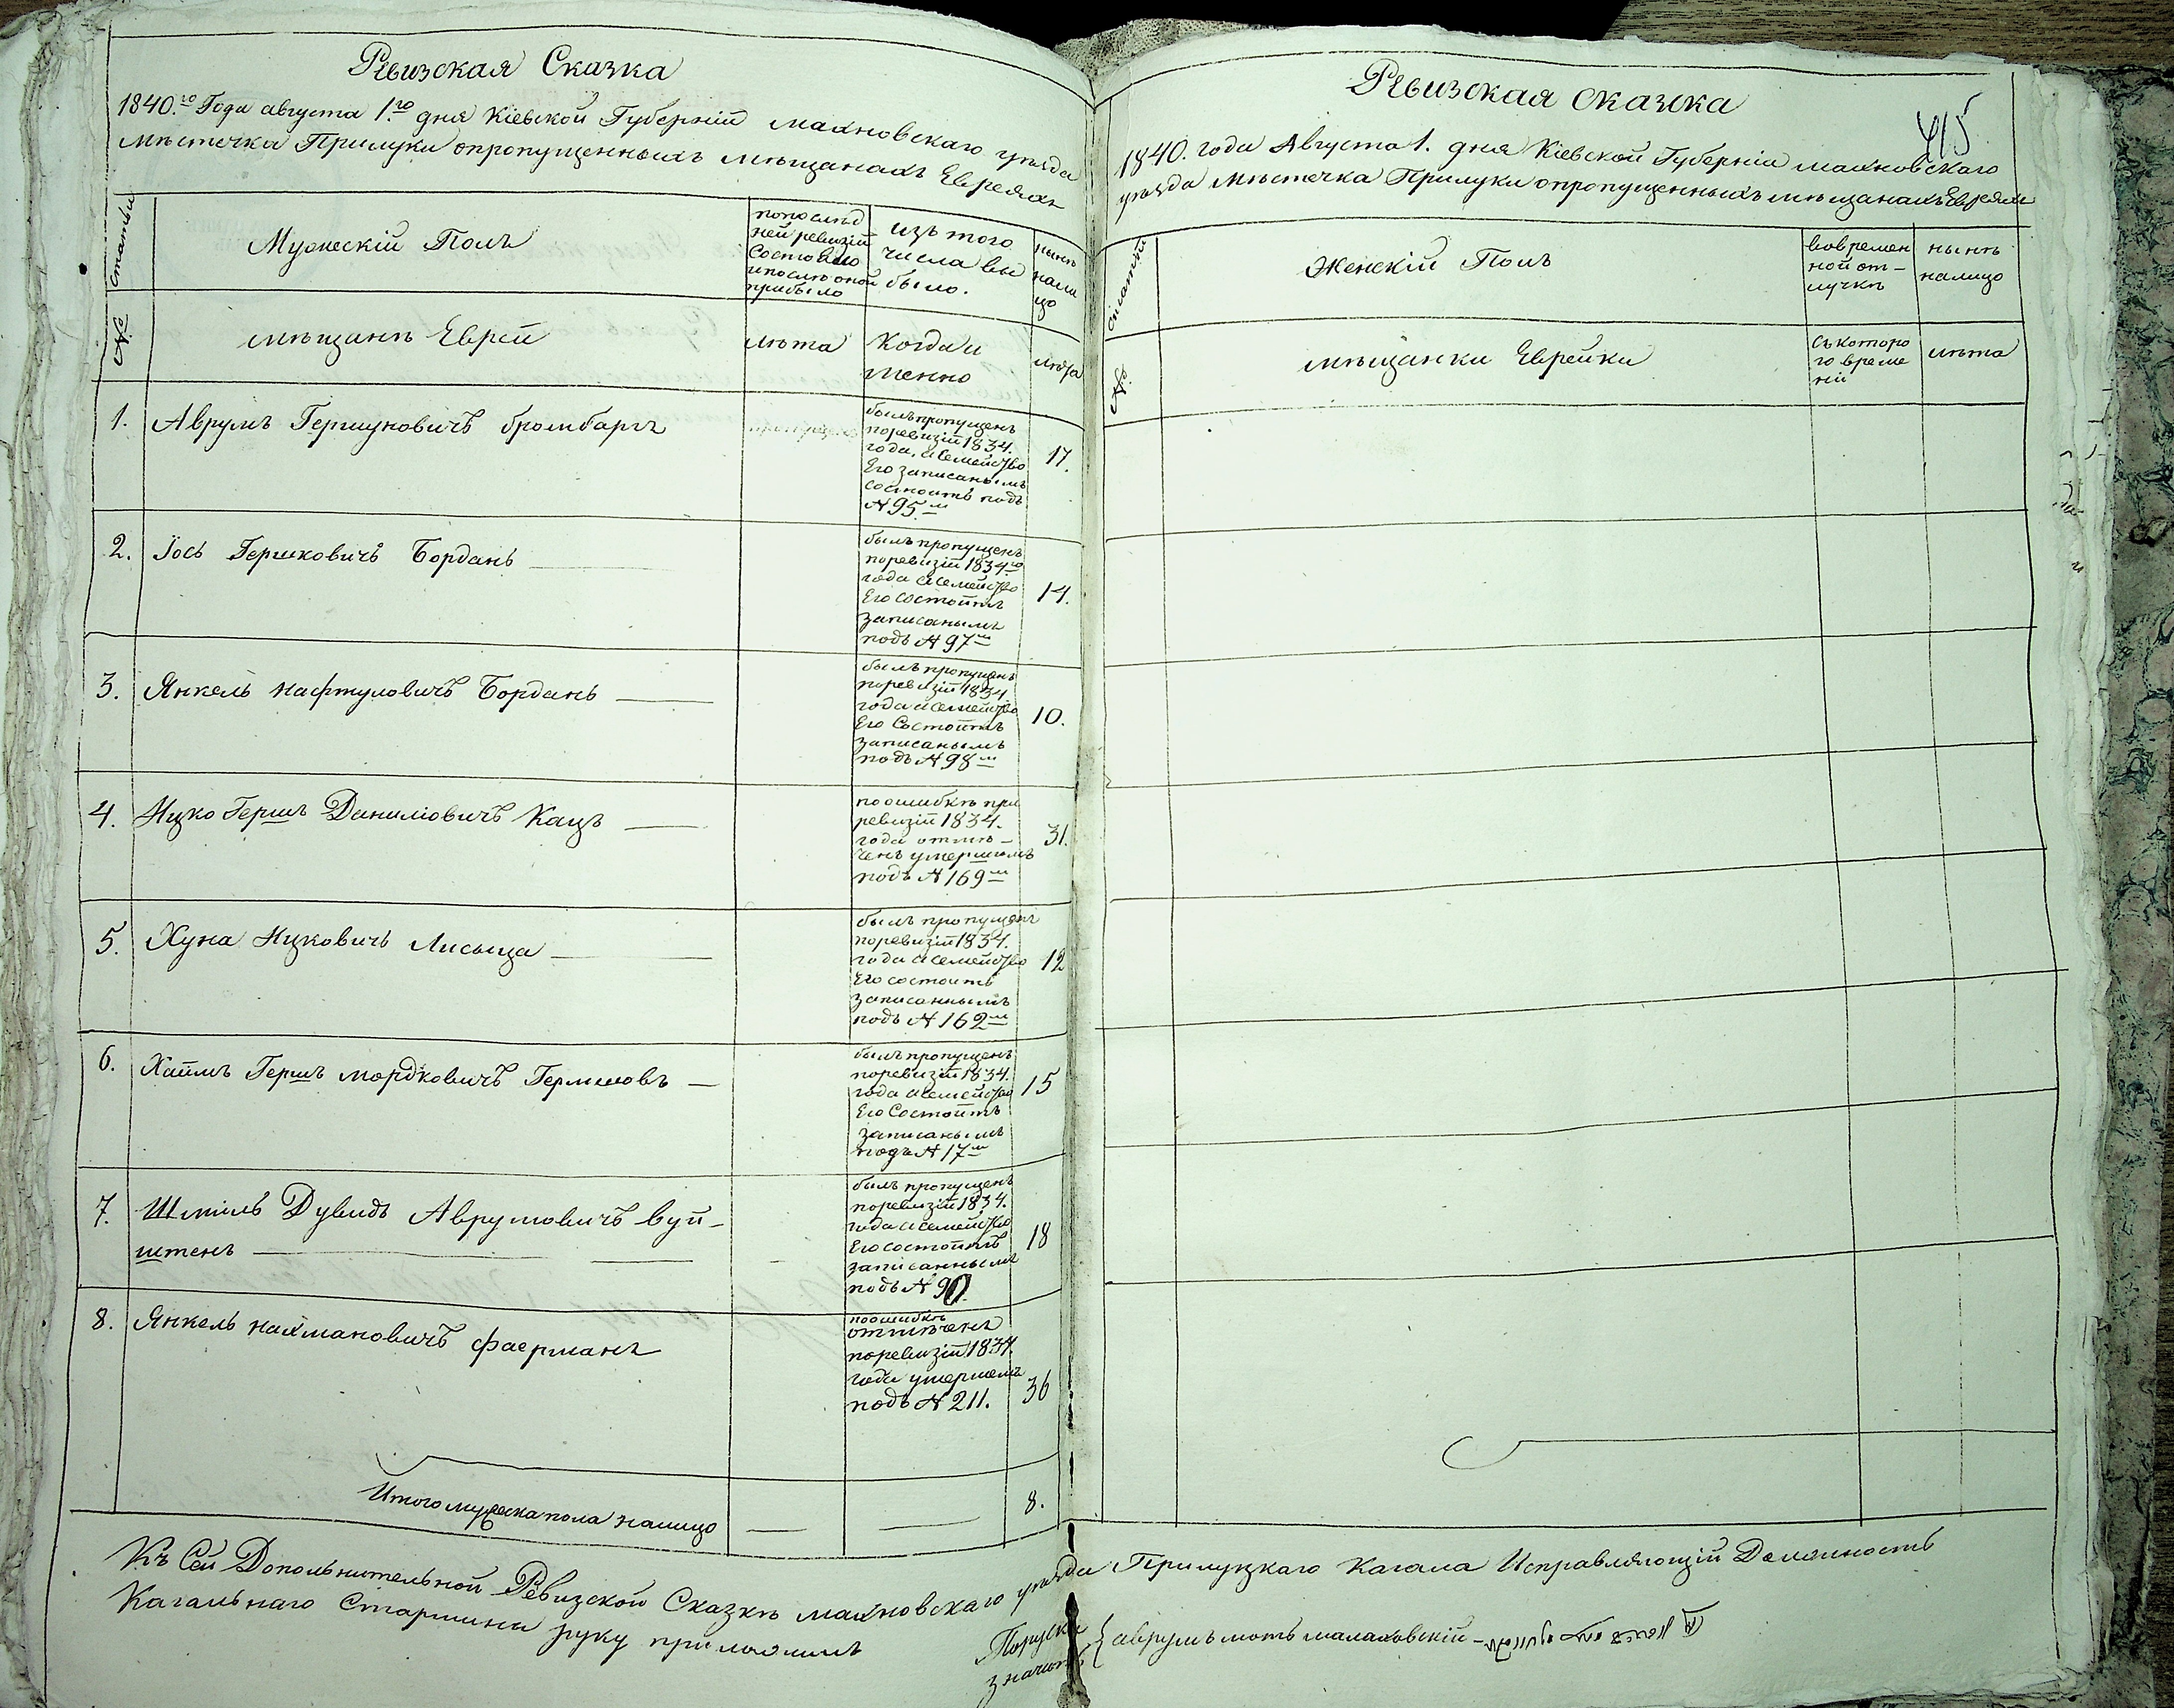 Ревизская Сказка
1840.го Года августа 1.го дня Кіевской Губерніи махновскаго уезда
местечка Прилуки опропущенныхъ мещанахъ Евреяхъ
статьи
Мужескій Полъ
попослед
ней ревизіи
Состояло
ипосле оной
прибыло
изъ того
числа вы
было.
ныне
нали
цо
№
мещане Еврей
лета
Когда и
менно
лета
1.
Аврумъ Гершуновичъ бромбаргъ
былъ пропущенъ
поревизіи 1834.
года, а Семейство
Его записанымъ
состоитъ подъ
№ 95м
17.
2.
Іось Гершковичъ Борданъ
былъ пропущенъ
поревизіи 1834го
года а семейство
Его состоитъ
записанымъ
подъ № 97м
14.
3.
Янкель нафтуловичъ Борданъ
былъ пропущенъ
поревизіи 1834.
года а семейство
Его Состоитъ
записанымъ
подъ № 98м
10.
4.
Ицко Гершъ Даниліовичъ Кацъ
поошибке при
ревизіи 1834.
года отме-
ченъ умершимъ
подъ № 169м
31.
5.
Хуна Ицковичъ Лисыца
былъ пропущенъ
поревизіи 1834.
года а семейство
Его состоитъ
записаннымъ
подъ № 162м
12
6.
Хаимъ Гершъ мордковичъ
былъ пропущенъ
поревизіи 1834.
года а семейство
Его Состоитъ
записанымъ
подъ № 17м
15
7.
Шміль Дувидъ Аврумовичъ вуй-
штенъ
былъ пропущенъ
поревизіи 1834.
года а семейство
Его состоитъ
записаннымъ
подъ № 90
18
8.
Янкель нахмановичъ фаерманъ
поошибке
отмеченъ
поревизіи 1834.
года умершемъ
подъ № 211.
36
Итого мужеска пола налицо
8.
Ревизская сказка
415
1840. года Августа 1. дня Кіевской Губерніи махновскаго
уезда местечка Прилуки опропущенныхъ мещанахъ Евреяхъ
статьи
Женскій Полъ
вовремен
ной от-
лучке
ныне
налицо
№
мещанки Еврейки
съкоторо
го време
ни
лета
Къ Сей Дополнительной Ревизской Сказке махновскаго уезда Прилуцкаго Кагала Исправляющій Должность
Кагальнаго Старшины руку приложилъ
Поруски
значитъ
аврумъ мотъ малаховскій